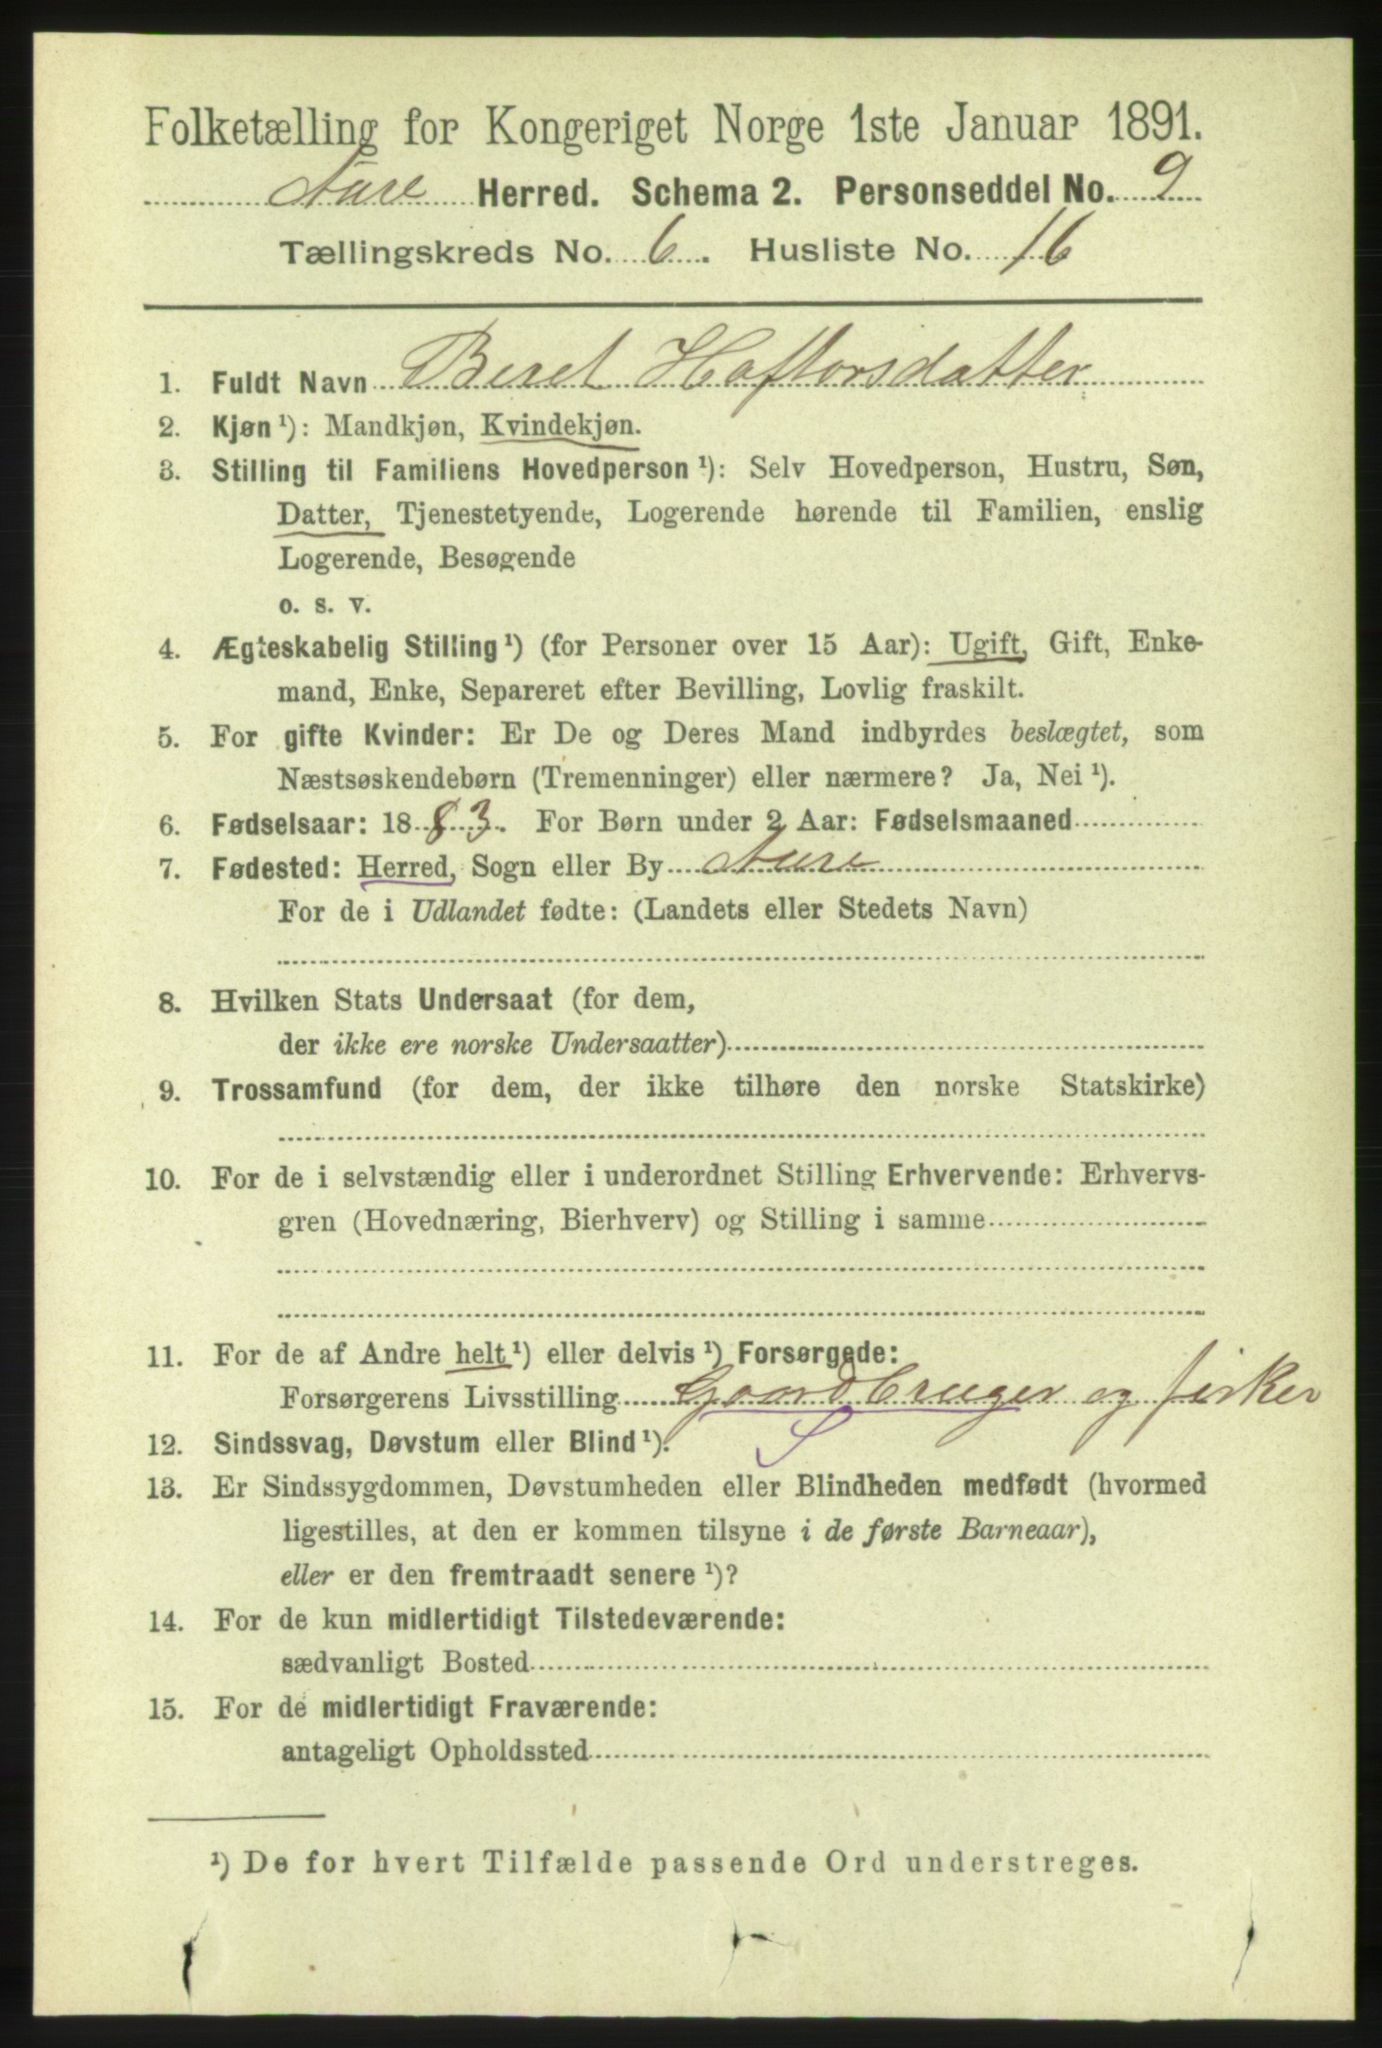 Folketælling for Kongeriget Norge 1ste Januar 1891.
Aure Herred. Schema 2. Personseddel No. 9
Tællingskreds No. 6. Husliste No. 16
1. Fuldt Navn Beret Haftorsdatter
2. Kjøn ¹): Mandkjøn, Kvindekjøn.
3. Stilling til Familiens Hovedperson ¹): Selv Hovedperson, Hustru, Søn,
Datter, Tjenestetyende, Logerende hørende til Familien, enslig
Logerende, Besøgende
o. s. v.
4. Ægteskabelig Stilling ¹) (for Personer over 15 Aar): Ugift, Gift, Enke-
mand, Enke, Separeret efter Bevilling, Lovlig fraskilt.
5. For gifte Kvinder: Er De og Deres Mand indbyrdes beslægtet, som
Næstsøskendebørn (Tremenninger) eller nærmere? Ja, Nei ¹).
6. Fødselsaar: 1883. For Børn under 2 Aar: Fødselsmaaned
7. Fødested: Herred, Sogn eller By Aure
For de i Udlandet fødte: (Landets eller Stedets Navn)
8. Hvilken Stats Undersaat (for dem,
der ikke ere norske Undersaatter)
9. Trossamfund (for dem, der ikke tilhøre den norske Statskirke)
10. For de i selvstændig eller i underordnet Stilling Erhvervende: Erhvervs-
gren (Hovednæring, Bierhverv) og Stilling i samme
11. For de af Andre helt ¹) eller delvis ¹) Forsørgede:
Forsørgerens Livsstilling Gaardbruger og fisker
12. Sindssvag, Døvstum eller Blind ¹). S
13. Er Sindssygdommen, Døvstumheden eller Blindheden medfødt (hvormed
ligestilles, at den er kommen tilsyne i de første Barneaar),
eller er den fremtraadt senere ¹)?
14. For de kun midlertidigt Tilstedeværende:
sædvanligt Bosted
15. For de midlertidigt Fraværende:
antageligt Opholdssted
¹) De for hvert Tilfælde passende Ord understreges.